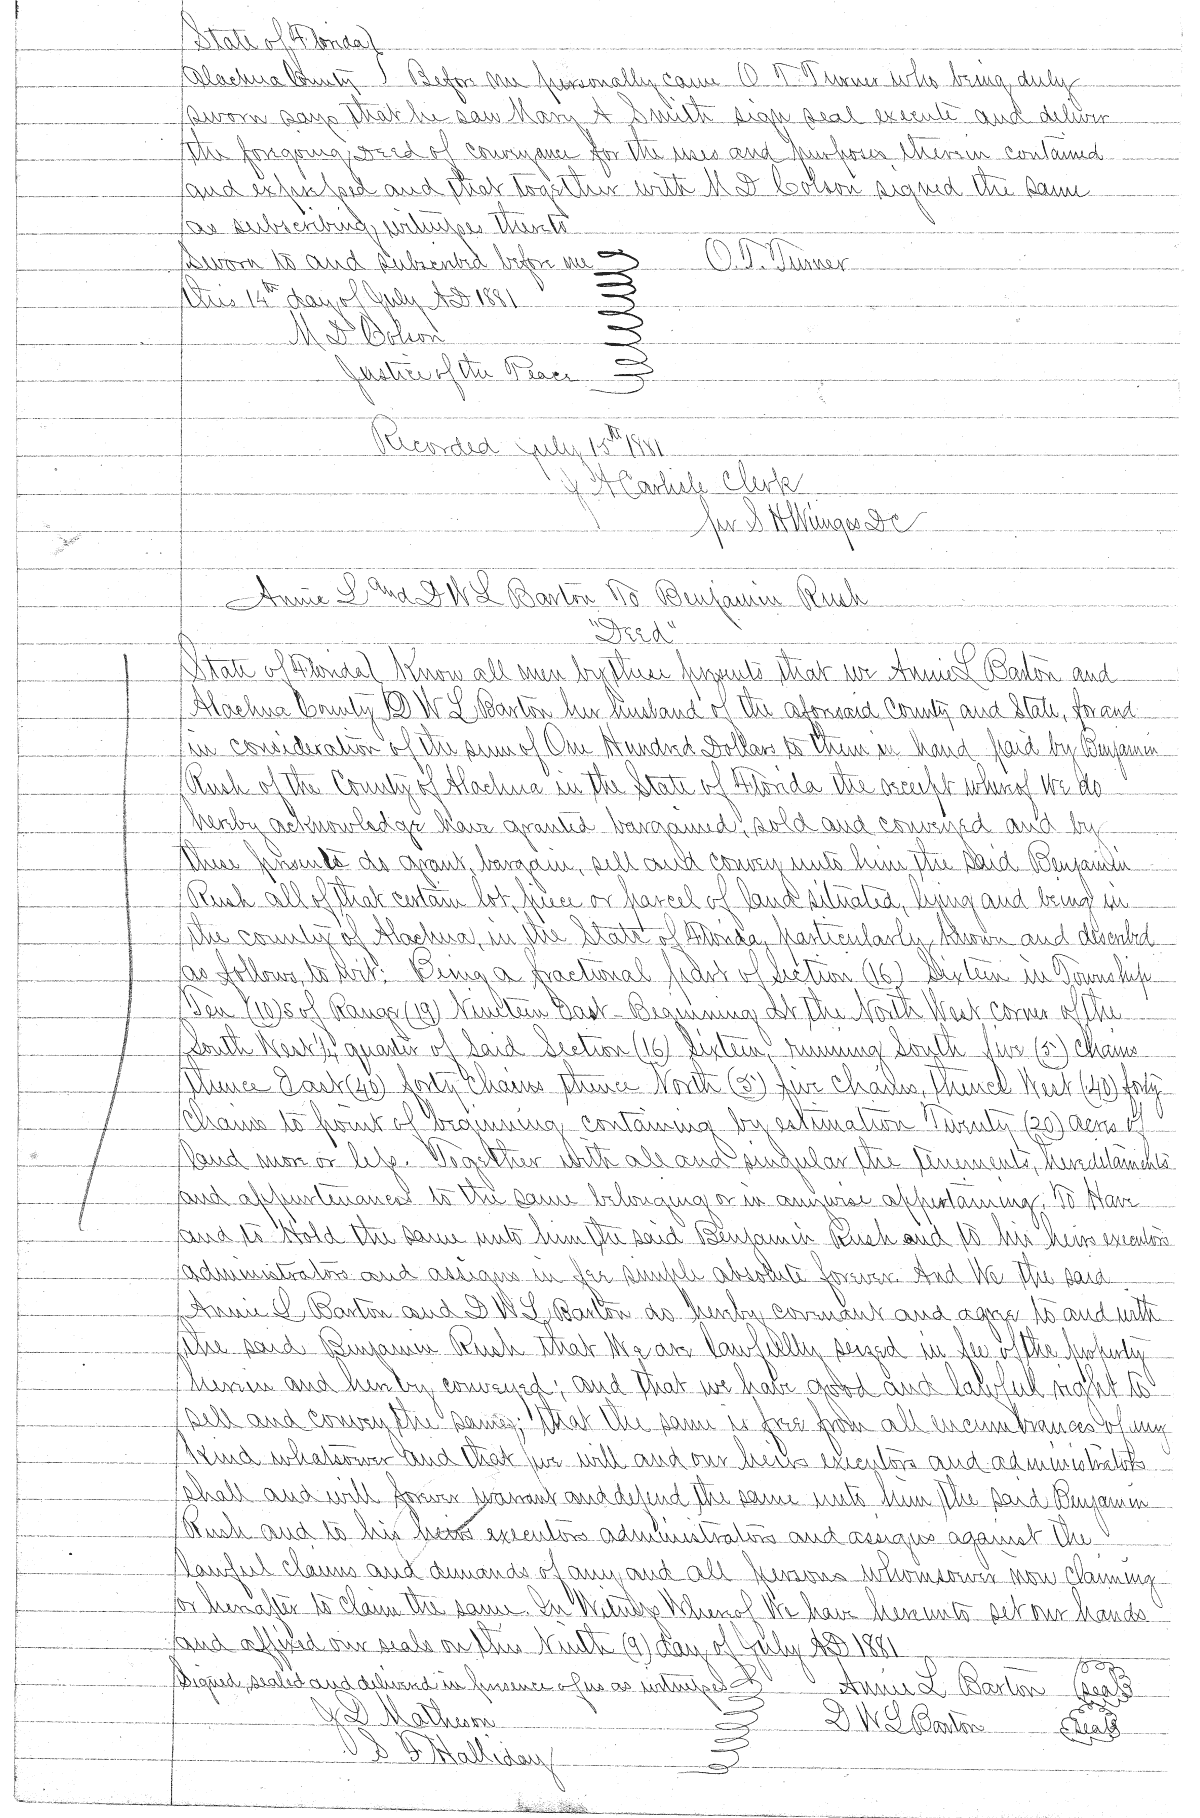 State of Florida }
Alachua County } Before me personally came O. T. Turner who being duly
sworn says that he saw Mary A Smith sign seal execute and deliver
the foregoing Deed of conveyance for the uses and purposes therein contained
and expressed and that together with M D Colson signed the same
as subscribing witness thereto
Sworn to and subscribed before me O. T. Turner
this 14th day of July AD 1881
M D Colson
Justice of the Peace
Recorded July 15th 1881
J A Carlisle Clerk
per S H Wienges DC
Annie L and D W L Barton To Benjamin Rush
"Deed"
State of Florida } Know all men by these presents that we Annie L Barton and
Alachua County } D W L Barton her husband of the aforesaid County and State, for and
in consideration of the sum of One Hundred Dollars to them in hand paid by Benjamin
Rush of the County of Alachua in the State of Florida the receipt whereof We do
hereby acknowledge have granted bargained, sold and conveyed and by
these presents do grant, bargain, sell and convey unto him the said Benjamin
Rush all of that certain lot, piece or parcel of land situated, lying and being in
the county of Alachua, in the State of Florida, particularly known and described
as follows, to wit: Being a fractional part of Section (16) Sixteen in Township
Ten (10) S of Range (19) Nineteen East - Beginning at the North West corner of the
South West 1/4 quarter of Said Section (16) Sixteen, running South five (5) Chains
thence East (40) forty Chains thence North (5) five Chains, thence West (40) forty
Chains to point of beginning containing by estimation Twenty (20) acres of
land more or less. Together with all and singular the tenements, heredetaments
and appurtenances to the same belonging or in anywise appertaining. To Have
and to Hold the same unto him the said Benjamin Rush and to his heirs executors
administrators and assigns in fee simple absolute forever. And We the said
Annie L Barton and D W L Barton do hereby covenant and agree to and with
the said Benjamin Rush that We are lawfully seized in fee of the property
herein and hereby conveyed; and that we have good and lawful right to
sell and convey the same; that the same is free from all incumbrances of any
kind whatsoever and that we will and our heirs executors and administrators
shall and will forever warrant and defend the same unto him the said Benjamin
Rush and to his heirs executors administrators and assigns against the
lawful claims and demands of any and all persons whomsoever now claiming
or hereafter to claim the same. In Witness Whereof We have hereunto set our hands
and affixed our seals on this Ninth (9) day of July AD 1881
Signed, sealed and delivered in presence of us as witnesses Annie L Barton (seal)
J D Matheson D W L Barton (seal)
S F Halliday